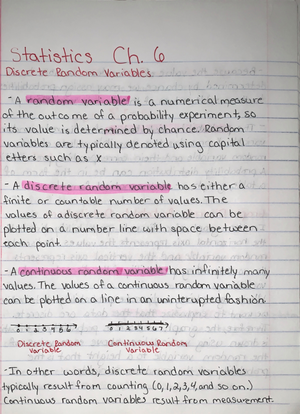 Statistics Ch. 6
Discrete Random Variables
- A random variable is a numerical measure
of the outcome of a probability experiment, so
its value is determined by chance. Random
variables are typically denoted using capital
etters such as X
- A discrete random variable has either a
finite or countable number of values. The
values of a discrete random variable can be
plotted on a number line with space between
each point.
- A continuous random variable has infinitely many
values. The values of a continuous random variable
can be plotted on a line in an uninterupted fashion
0 1 2 3 4 5 6 0 1 2 3 4 5 6 7
Discrete Random Continuous Random
Variable Variable
- In other words, discrete random variables
typically result from counting (0,1,2,3,4, and so on.)
Continuous random variables result from measurement.